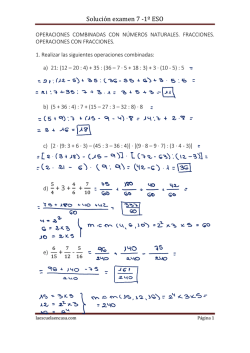 Solución examen 7 -1º ESO
OPERACIONES COMBINADAS CON NÚMEROS NATURALES. FRACCIONES.
OPERACIONES CON FRACCIONES.
1. Realizar las siguientes operaciones combinadas:
a) 21: (12 – 20 : 4) + 35 : (36 – 7 · 5 + 18 : 3) + 3 · (10 - 5) : 5 =
= 21 : (12-5) + 35 : (36-35+6) + 3 · 5 : 5 =
= 21 : 7 + 35 : 7 + 3 · 1 = 3 + 5 + 3 = 11
b) (5 + 36 : 4) : 7 + (15 – 27 : 3 – 32 : 8) · 8 =
= (5+9) : 7 + (15 - 9 - 4) · 8 = 14 : 7 + 2 · 8 =
= 2 + 16 = 18
c) [2 · (9: 3 + 6 · 3) – (45 : 3 – 36 : 4)] · [(9 · 8 – 9 · 7) : (3 · 4 - 3)] =
d) 5/4 + 3 + 4/6 + 7/10 = 75/60 + 180/60 + 40/60 + 42/60 =
= 75 + 180 + 40 + 42 / 60 = 337/60
4 = 2²
6 = 2x3
10 = 2x5
m c m (4, 6, 10) = 2² x 3 x 5 = 60
e) 6/15 + 7/12 - 5/16 = 96/240 + 140/240 - 75/240 =
= 96 + 140 - 75 / 240 = 161/240
15 = 3x5
12 = 2² x 3
m c m (15, 12, 16) = 2⁴ x 3 x 5 =
= 240
laescuelaencasa.com
Página 1